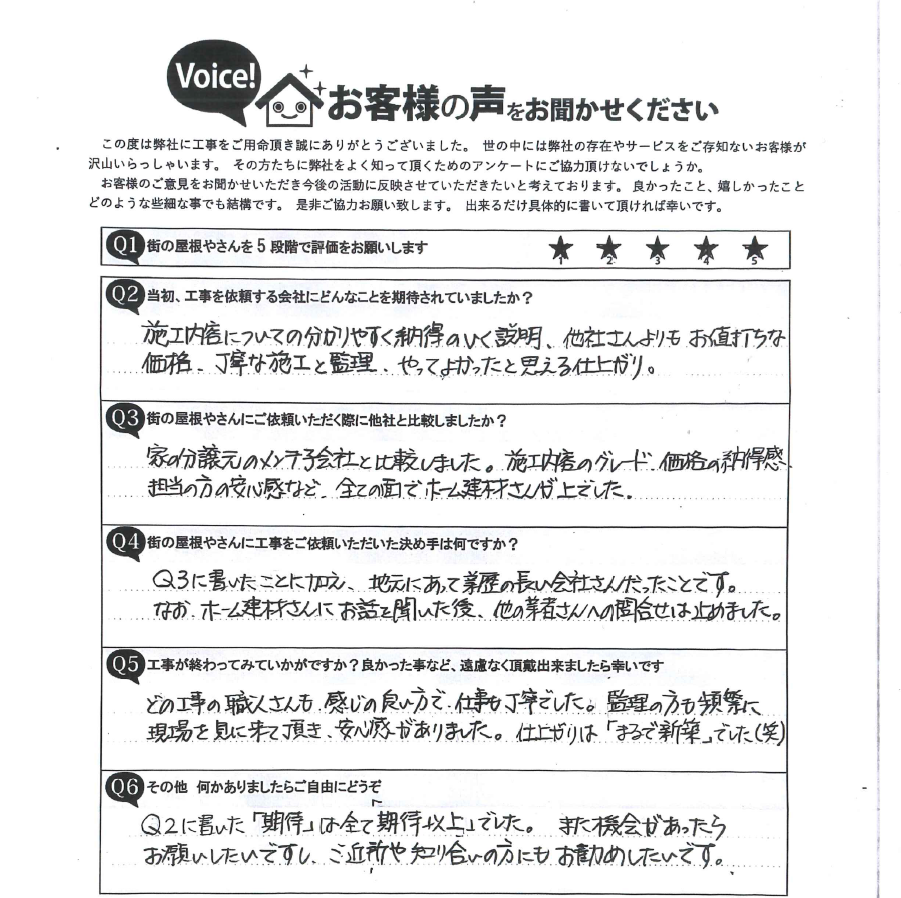 Voice!
お客様の声をお聞かせください
この度は弊社に工事をご用命頂き誠にありがとうございました。 世の中には弊社の存在やサービスをご存知ないお客様が
沢山いらっしゃいます。 その方たちに弊社をよく知って頂くためのアンケートにご協力頂けないでしょうか。
お客様のご意見をお聞かせいただき今後の活動に反映させていただきたいと考えております。 良かったこと、嬉しかったこと
どのような些細な事でも結構です。 是非ご協力お願い致します。 出来るだけ具体的に書いて頂ければ幸いです。
Q1 街の屋根やさんを 5 段階で評価をお願いします ★ ★ ★ ★ ★
1 2 3 4 5
Q2 当初、工事を依頼する会社にどんなことを期待されていましたか?
施工内容についての分かりやすく納得のいく説明、他社さんよりもお値打ちな
価格、丁寧な施工と監理、やってよかったと思える仕上がり。
Q3 街の屋根やさんにご依頼いただく際に他社と比較しましたか?
家の分譲元のメンテ子会社と比較しました。施工内容のグレード、価格の納得感、
担当の方の安心感など、全ての面でホーム建材さんが上でした。
Q4 街の屋根やさんに工事をご依頼いただいた決め手は何ですか?
Q3に書いたことに加え、地元にあって業歴の長い会社さんだったことです。
なお、ホーム建材さんにお話を聞いた後、他の業者さんへの問合せは止めました。
Q5 工事が終わってみていかがですか?良かった事など、遠慮なく頂戴出来ましたら幸いです
どの工事の職人さんも、感じの良い方で、仕事も丁寧でした。監理の方も頻繁に
現場を見に来て頂き、安心感がありました。仕上がりは「まるで新築」でした(笑)
Q6 その他 何かありましたらご自由にどうぞ
Q2に書いた「期待」は全て「期待以上」でした。 また機会があったら
お願いしたいですし、ご近所や知り合いの方にもお勧めしたいです。